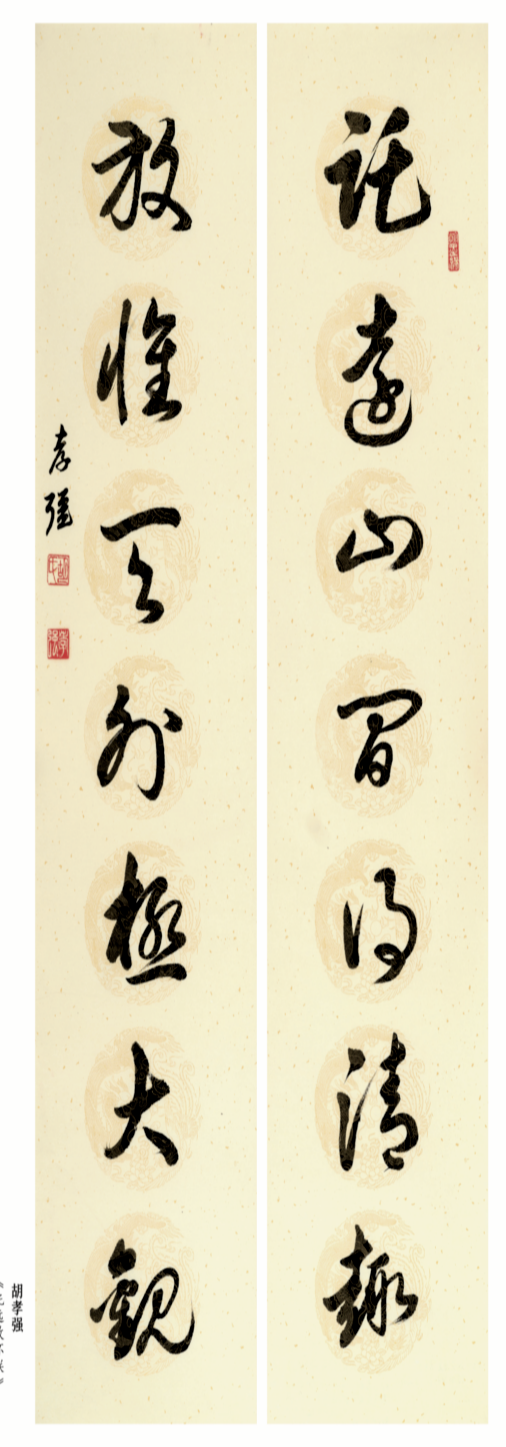 託遠山間得清趣
放懷天外極大觀
孝彊
胡孝强